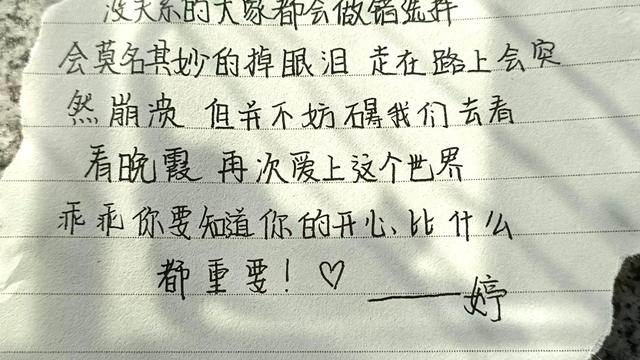 没关系的大家都会做错选择
会莫名其妙的掉眼泪 走在路上会突
然崩溃 但并不妨碍我们去看
看晚霞 再次爱上这个世界
乖乖你要知道你的开心、比什么
都重要！♡
——婷